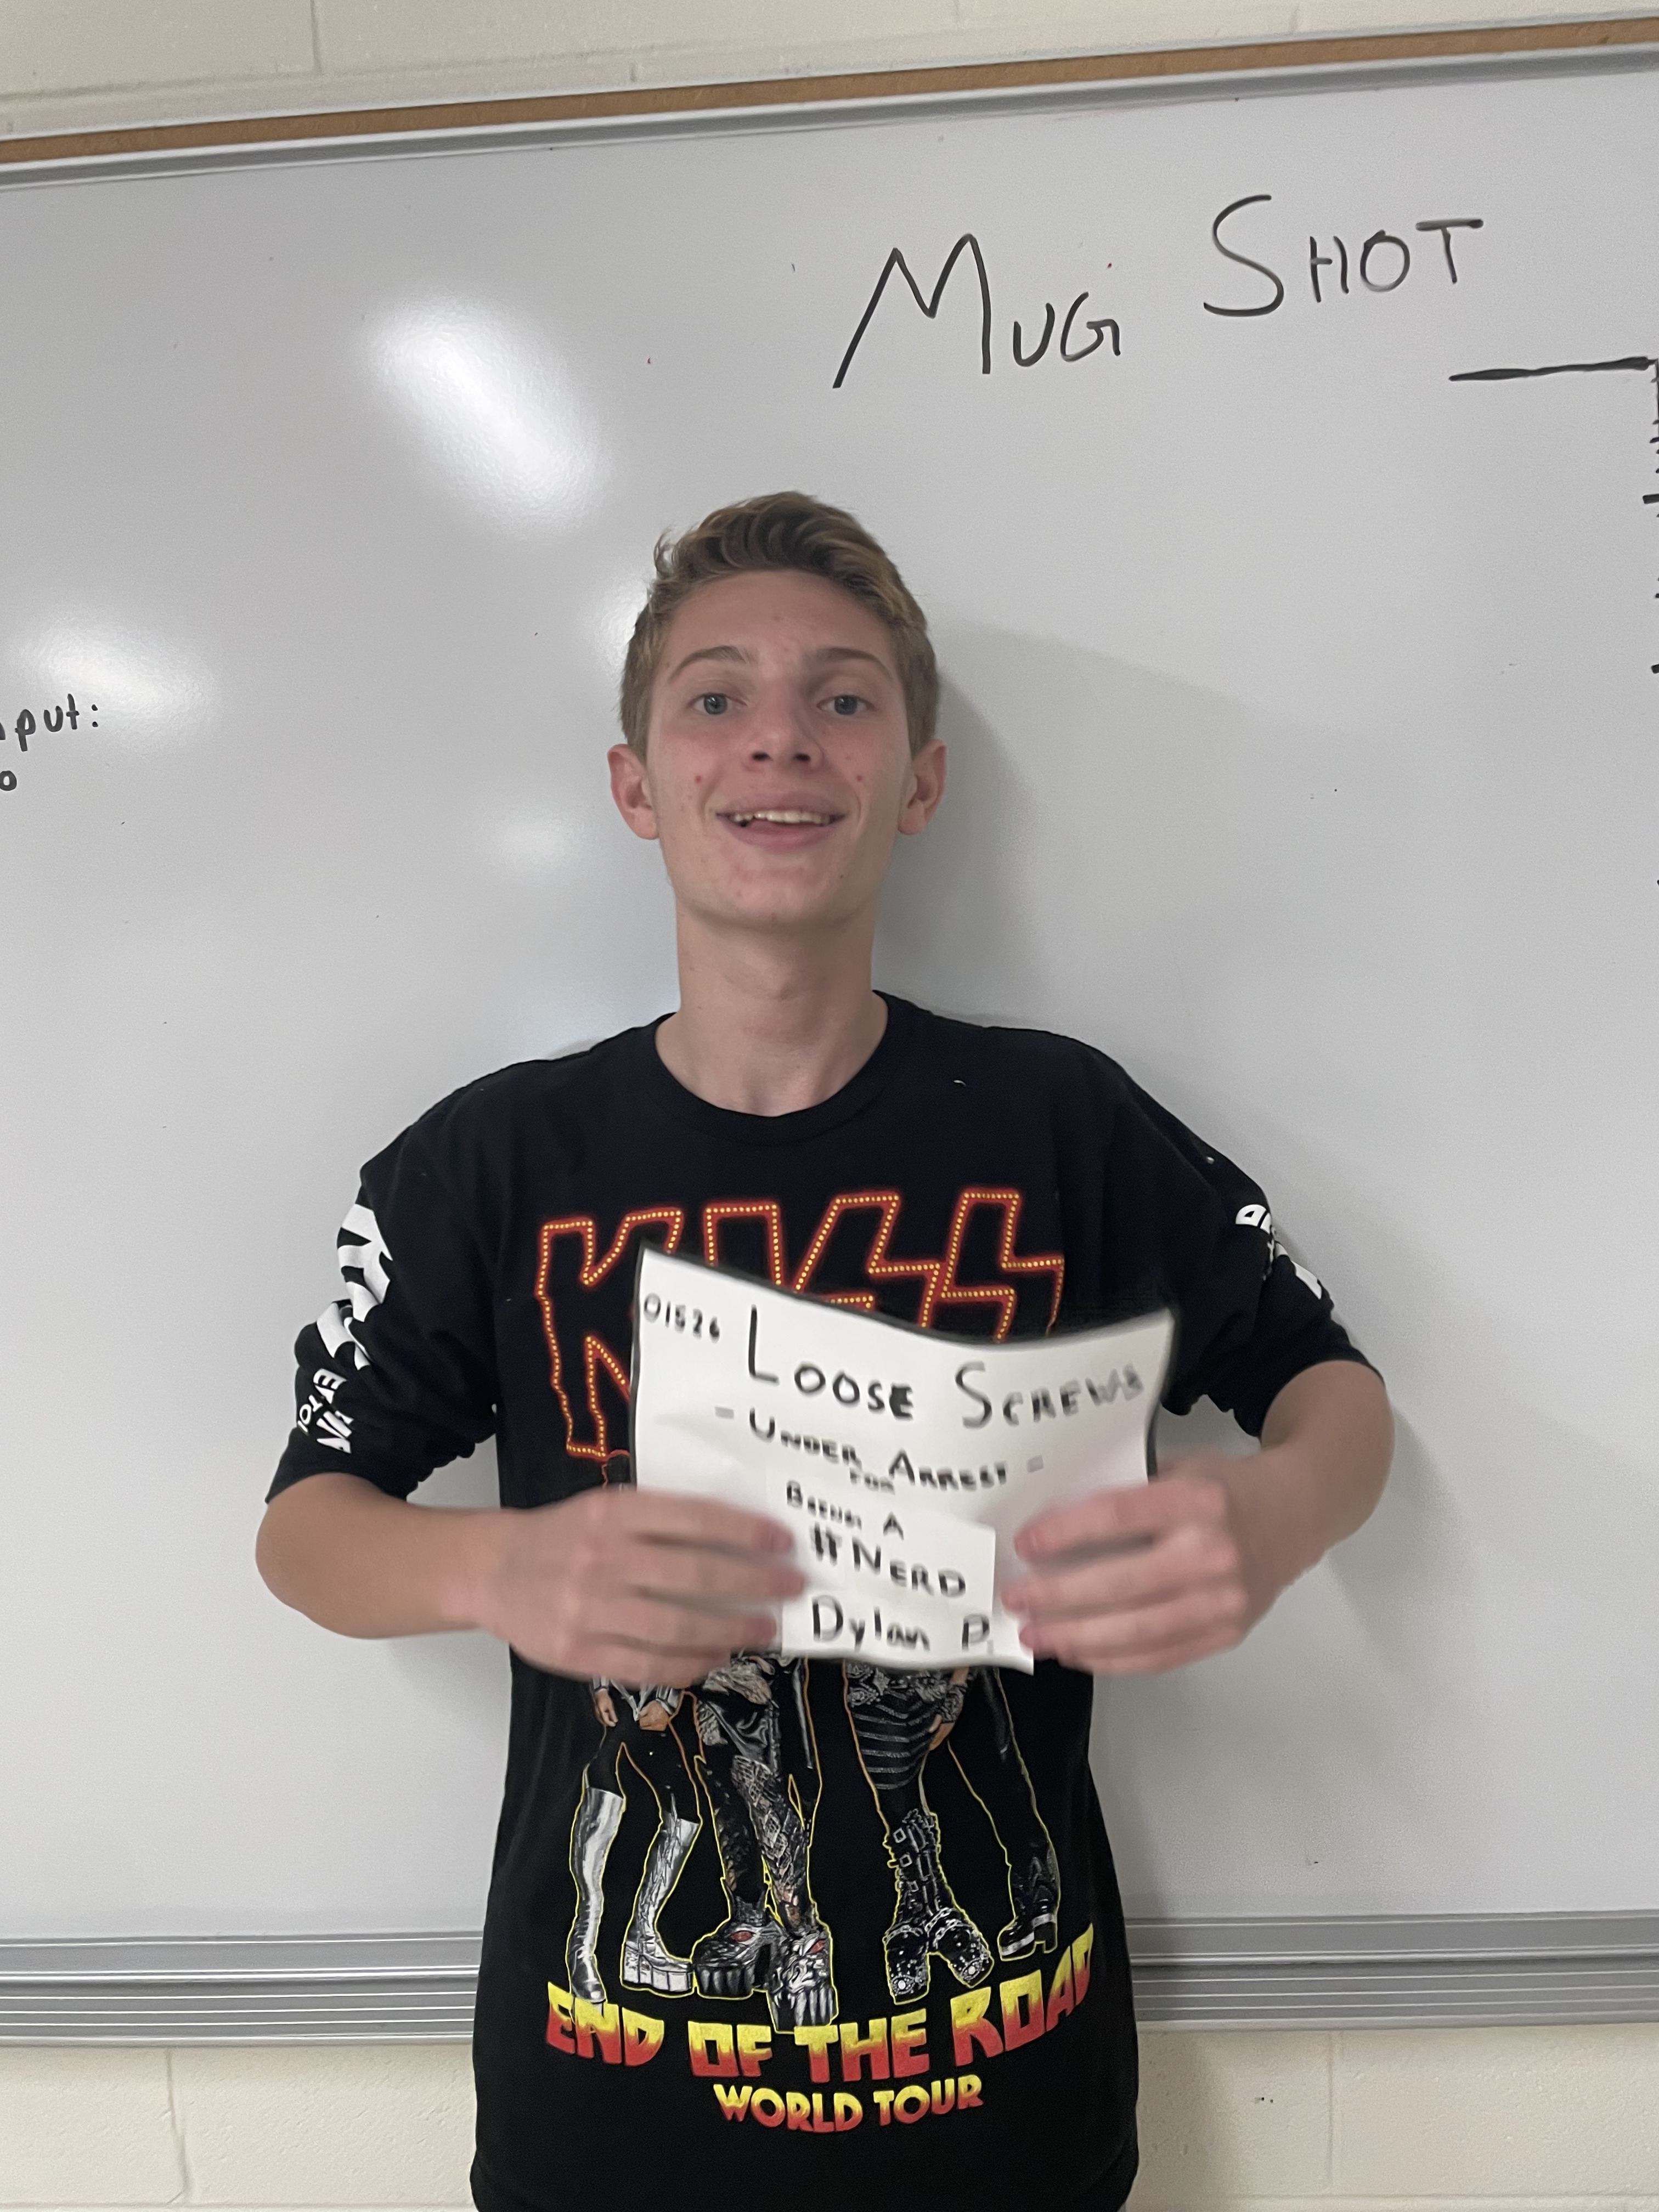 MUG SHOT
nput:
o
KISS
01526 LOOSE SCREWS
- UNDER ARREST -
FOR
BEING A
#NERD
Dylan P.
END OF THE ROAD
WORLD TOUR